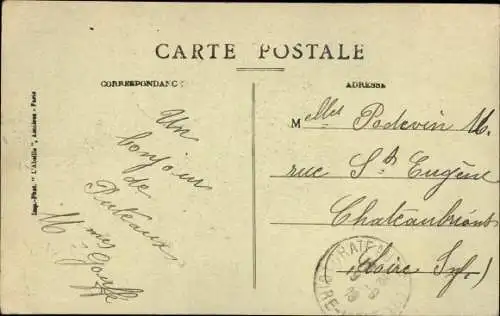 CARTE POSTALE
CORRESPONDANCE
ADRESSE
Imp.-Phot. "L'Abeille", Asnières - Paris
Un
bonjour
de
Puteaux
M
Melles Podevin M.
rue St Eugène
Chateaubriant
(Loire Infre)